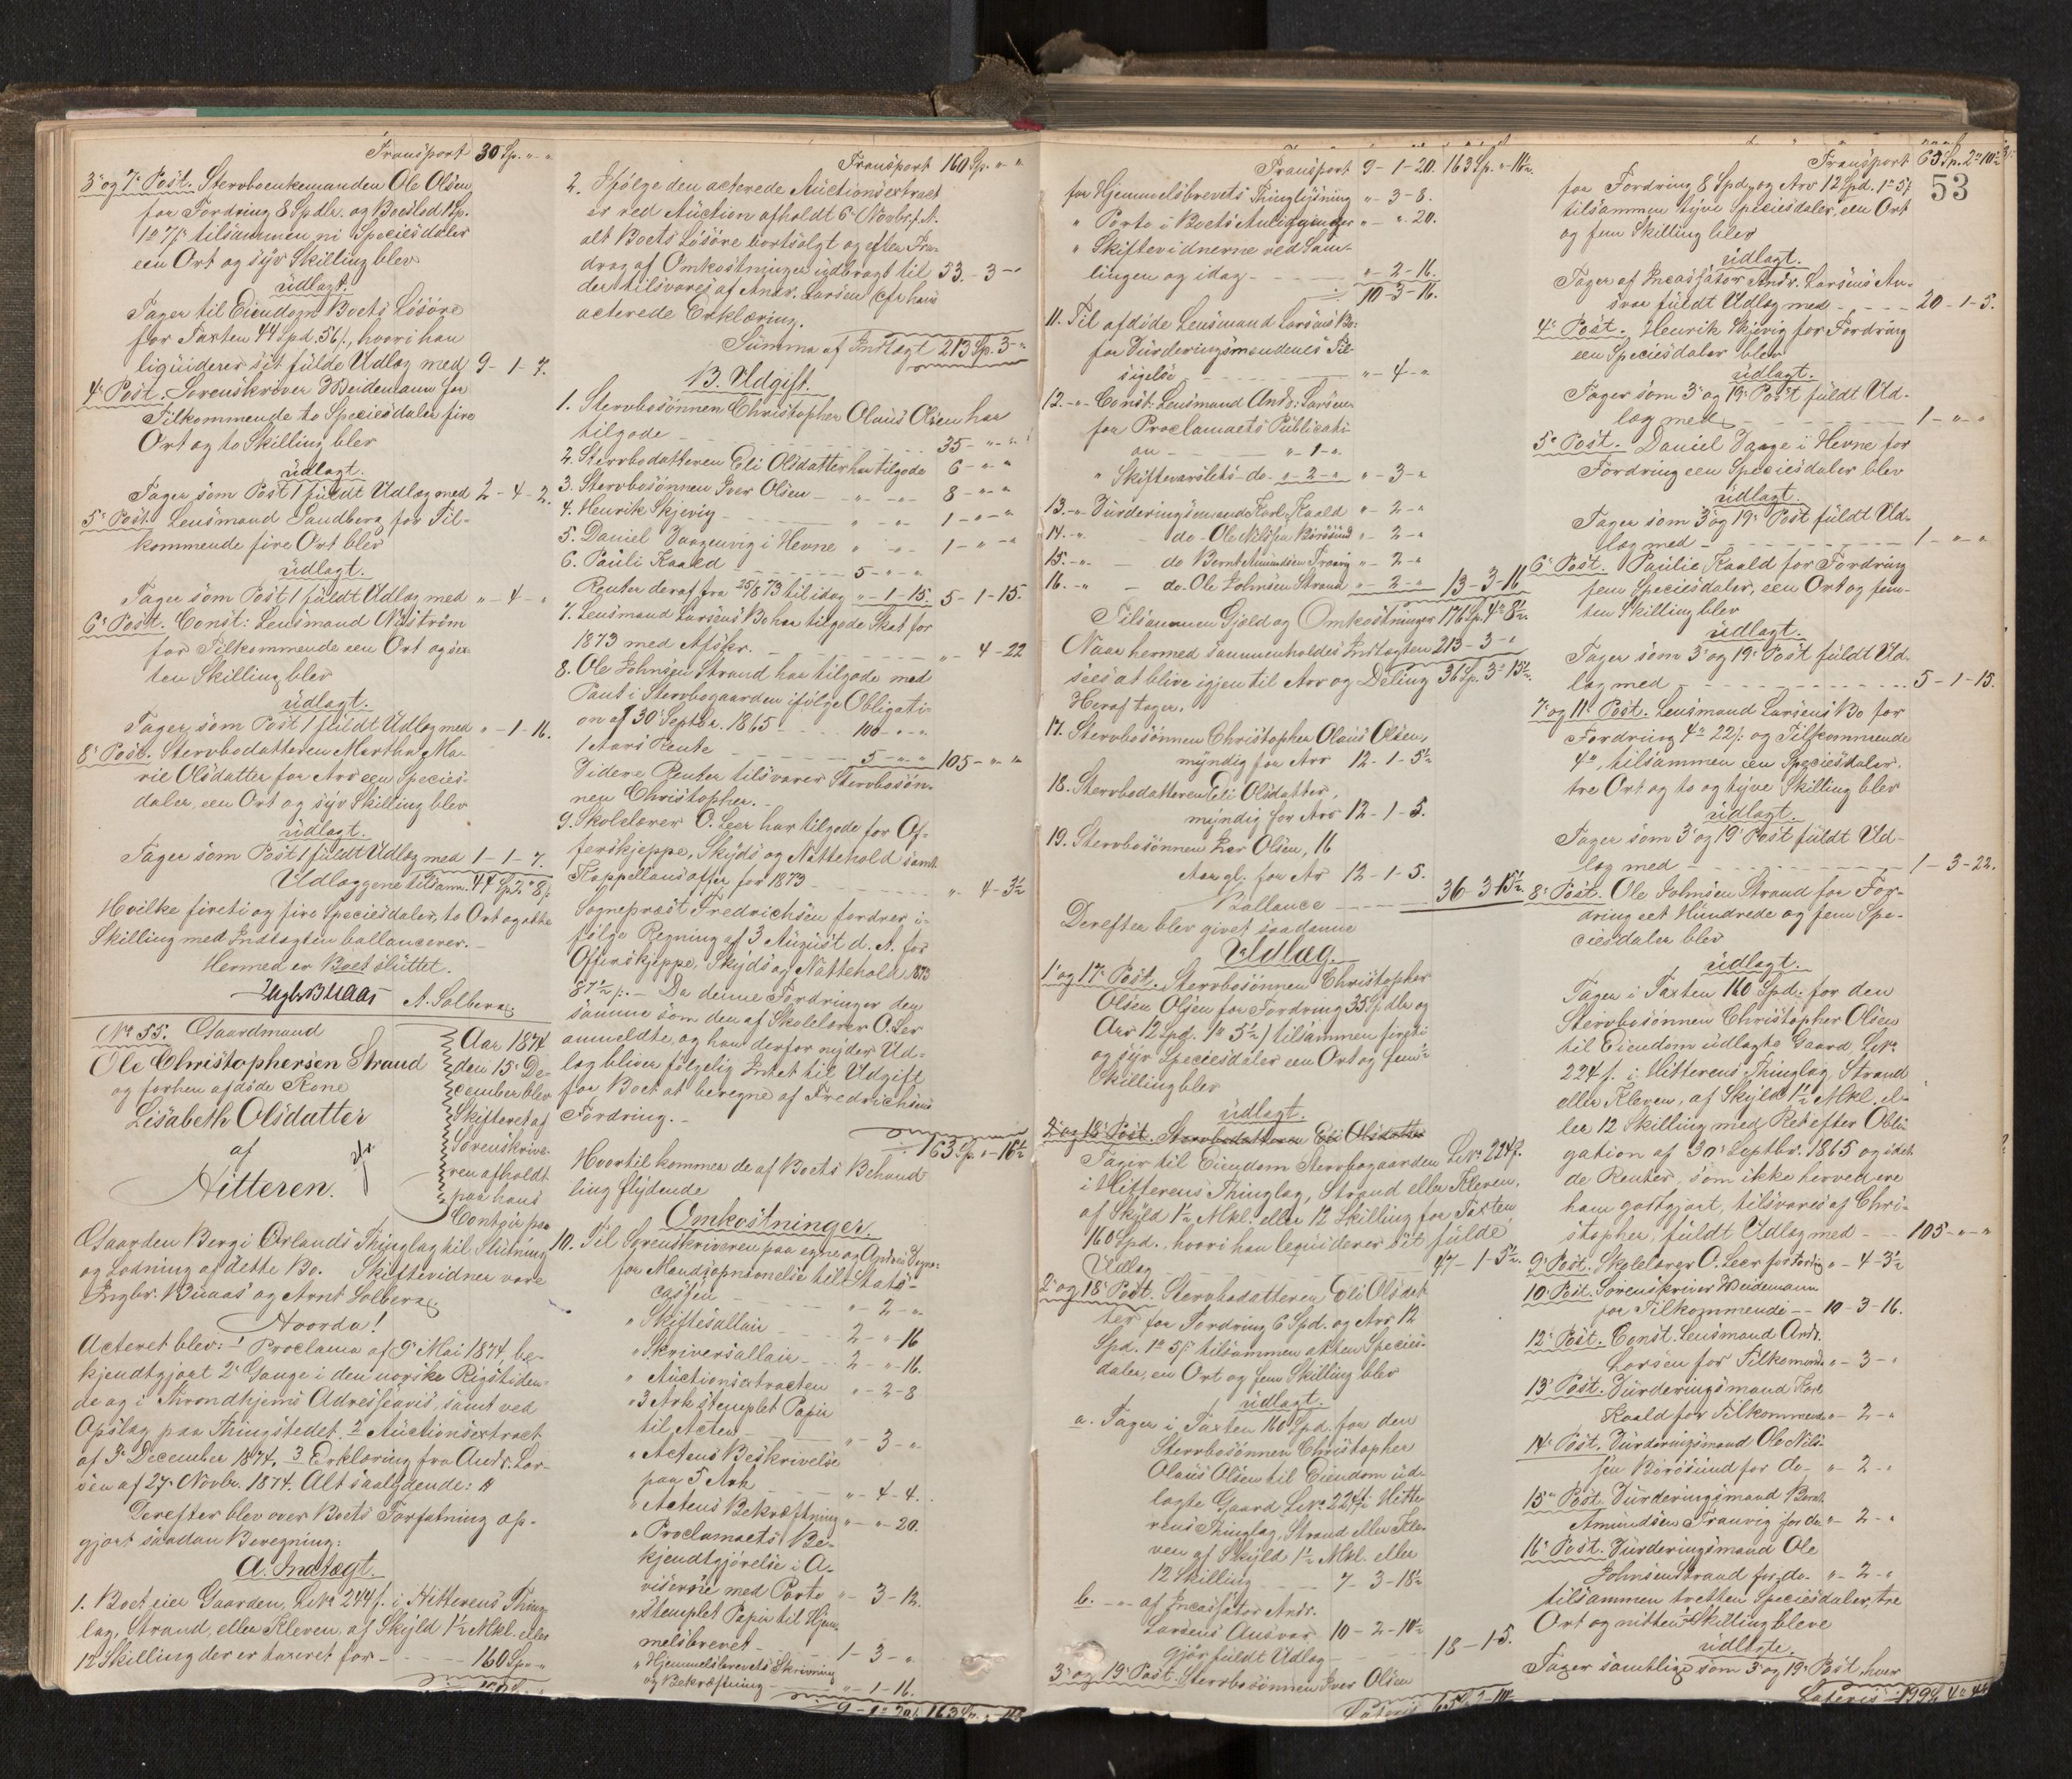 Transport 30 Sp. " "
3' og 7' Post. Stervboenkemanden Ole Olsen
for Fordring 8 Spdlr. og Boeslod 1 Sp.
1 ort 7 s tilsammen ni Speciesdaler
een Ort og syv Skilling blev
üdlagt.
Tager til Eiendom Boets Lösöre
for Taxten 44 Spd. 56 s, hvori han
liqüiderer sit fülde Udlæg med 9 - 1 - 7.
4' Post. Sorenskriver Weidemann for
Tilkommende to Speciesdaler fire
Ort og to Skilling blev
üdlagt.
Tager som Post 1 füldt Udlæg med 2 - 4 - 2.
5' Post. Lensmand Sandberg for Til-
kommende fire Ort blev
üdlagt.
Tager som Post 1 füldt Udlæg med " - 4 - "
6' Post. Const: Lensmand Nÿström
for Tilkommende een Ort og sex
ten Skilling blev
üdlagt.
Tager som Post 1 füldt Udlæg med " - 1 - 16.
8' Post. Stervbodatteren Martha Ma-
rie Olsdatter for Arv een Species-
daler, een Ort og syv Skilling blev
üdlagt.
Tager som Post 1 füldt Udlæg med 1 - 1 - 7.
Udlæggene tilsamn. 44 Sp. 2 ort 8 s
Hvilke fireti og fire Speciesdaler, to Ort og otte
Skilling med Indtægten ballancerer. -
Hermed er Boet slüttet.
A. Solberg
No 55. Gaardmand
Ole Christophersen Strand
og forhen afdöde Kone
Lisabeth Olsdatter
af
Hitteren.
Aar 1874
den 15' De-
cember blev
Skifteret af
Sorenskrive-
ren afholdt
paa hans
Contoir paa
Gaarden Berg i Örlands Thinglag til Slütning
og Lodning af dette Bo. Skiftevidner vare
Ingbr. Buaas og Arnt Solberg.
Hvorda!
Acteret blev: 1 Proclama af 9' Mai 1874, be-
kjendtgjort 2' Gange i den norske Rigstiden-
de og i Throndhjems Adresseavis, samt ved
Opslag paa Thingstedet. 2 Auctionsextract
af 5' December 1874. 3 Erklæring fra Andr. Lar-
sen af 27' Novbr. 1874. Alt saalydende:
Derefter blev over Boets Forfatning op-
gjort saadan Beregning:
A. Indtægt.
1. Boet eier Gaarden, LNo 244 f. i Hitterens Thing-
lag, Strand, eller Kleven, af Skÿld 1½ Mkl. eller
12 Skilling der er taxeret for - - - 160 Sp. " "
Transport 160 Sp. " "
2. Ifölge den acterede Auctionsextract
er ved Auction afholdt 6' Novbr. f. A.
alt Boets Lösöre bortsolgt og efter Fra-
drag af Omkostninger üdbragt til 53. - 3 - "
der tilsvares af Andr. Larsen (cfr hans
acterede Erklæring.
Summa af Indtægt 213 Sp. 3 - "
B. Udgift.
1. Stervbosönnen Christopher Olaüs Olsen har
tilgode - - - 35 - " - "
2. Stervbodatteren Eli Olsdatter har tilgode 6 - " - "
3. Stervbosönnen Iver Olsen - " - " - 8 - " - "
4. Henrik Skjevig - - " - " - 1 - " - "
5. Daniel Vaagenvig i Hevne " - " - 1 - " - "
6. Paüli Kaald - - - 5 - " - "
Renter deraf fra 25/8 73 til idag " - 1 - 15. 5 - 1 - 15.
7. Lensmand Larsens Bo har tilgode Skat for
1873 med Afskr. - - - " - 4 - 22
8. Ole Johnsen Strand har tilgode med
Pant i Stervbogaarden ifölge Obligati-
on af 30' Septbr. 1865 - - 100 - " - "
1 Aars Rente - - 5 - " - " 105 - " - "
Videre Renter tilsvares Stervbosön-
nen Christopher. -
9. Skolelærer O. Leer har tilgode for Of-
ferskjeppe, Skÿds og Nattehold samt
Kappellansoffer for 1873 - - - " - 4 - 3½
Sognepræst Fredrichsen fordrer i-
fölge Regning af 3 Aügüst d. A. for
Offerskjeppe, Skÿds og Nattehold 1873
87½ s. - Da denne Fordringer den
samme som den af Skolelærer O. Leer
anmeldte, og han derfor nÿder Ud-
læg bliver fölgelig Intet til Udgift
for Boet at beregne af Fredrichsens
Fordring. -
163 Sp. " - 16½
Hvortil kommer de af Boets Behand-
ling flÿdende
Omkostninger.
10. Til Sorenskriveren paa egne og Andres Vegne:
for Mandsopnævnelse til Stats-
cassen - - " - 2 - "
" Skiftesallair - - 2 - " - 16
" Skriversallair - - 2 - " - 16.
" Auctionsextracten " - 2 - 8
" 3 Ark stemplet Papir
til Acten - - " - 3 - "
" Actens Beskrivelse
paa 5 Ark - - " - 4 - 4.
" Actens Bekræftning " - " - 20.
" Proclamaets Be-
kjendtgjörelse i A-
viserne med Porto " - 3 - 12.
" stemplet Papir til Hjem-
melsbrevet - - 1 - 3 - "
" Hjemmelsbrevets Skrivning
og Bekræftning - - " - 1 - 16.
9 - 1 ort 20 s 163 Sp. " - 16½
Transport 9 - 1 - 20. 163 Sp. " - 16½.
for Hjemmelsbrevets Thinglÿsning " - 3 - 8.
" Porto i Boets Anliggender " - " - 20.
" Skiftevidnerne ved Sam-
lingen og idag - - " - 2 - 16.
10 - 3 - 16.
11. Til afdöde Lensmand Larsens Bo:
for Vurderingsmændenes Til-
sigelse - - " - 4 - "
12. - " - Const: Lensmand Andr: Larsen
for Proclamaets Püblicati-
on - - " - 1 - "
" Skiftevarslets - do - " - 2 - " " - 3 - "
13. - " Vurderingsmand Karl Kaald " - 2 - "
14. - " - do - Ole Nilssen Börösünd " - 2 - "
15. - " - do Bernt Amundsen Tranvig " - 2 - "
16. - " - do. Ole Johnsen Strand " - 2 - " 13 - 3 - 16
Tilsammen Gjæld og Omkostninger 176 Sp. 4 ort 8½
Naar hermed sammenholdes Indtægten 213 - 3 - "
sees at blive igjen til Arv og Deling 36 Sp. 3 - 15½.
Heraf tager,
17. Stervbosönnen Christopher Olaüs Olsen,
mÿndig for Arv 12 - 1 - 5½
18. Stervbodatteren Eli Olsdatter,
mÿndig for Arv 12 - 1 - 5.
19. Stervbosönnen Iver Olsen, 16
Aar gl. for Arv 12 - 1 - 5.
36 - 3 - 15½.
Ballance - - -
Derefter blev givet saadanne
Udlæg.
1' og 17' Post. Stervbosönnen Christopher
Olsen Olsen for Fordring 35 Spdlr og
Arv 12 Spd. 1 ort 5½ s tilsammen fireti
og sÿv Speciesdaler een Ort og fem ½
Skilling blev
üdlagt.
2' og 18' Post. Stervbodatteren Eli Olsdatter
Tager til Eiendom Stervbogaarden LNo 224 f.
i Hitterens Thinglag, Strand eller Kleven,
af Skÿld 1½ Mkl. eller 12 Skilling for Taxten
160 Spd., hvori han leqüiderer sit fülde
Udlæg - - - 47 - 1 - 5½.
2' og 18' Post. Stervbodatteren Eli Olsdat
ter for Fordring 6 Spd. og Arv 12
Spd. 1 ort 5 s tilsammen atten Species-
daler, en Ort og fem Skilling blev
üdlagt.
a. Tager i Taxten 160 Spd. for den
Stervbosönnen Christopher
Olaüs Olsen til Eiendom üd-
lagte Gaard LNo 224 f. i Hitte-
rens Thinglag, Strand eller Kle-
ven af Skÿld 1½ Mkl. eller
12 Skilling - - 7 - 3 - 18½
b. - " - af Incassator Andr.
Larsens Ansvar 10 - 2 - 10½
gjör füldt Udlæg - - 18 - 1 - 5.
3' og 19' Post. Stervbosönnen Iver Olsen
53
Transport 65 Sp. 2 ort 10½ s
for Fordring 8 Spd. og Arv 12 Spd. 1 ort 5 s
tilsammen tÿve Speciesdaler, een Ort
og fem Skilling blev
üdlagt.
Tager af Incassator Andr. Larsens An-
svar füldt Udlæg med - - 20 - 1 - 5.
4' Post. Henrik Skjevig for Fordring
een Speciesdaler blev
üdlagt.
Tager som 3' og 19' Post füldt Ud-
læg med - - 1 - " - "
5' Post. Daniel Vaage i Hevne for
Fordring een Speciesdaler blev
üdlagt.
Tager som 3' og 19' Post füldt Ud-
læg med - - 1 - " - "
6' Post. Paülie Kaald for Fordring
fem Speciesdaler, een Ort og fem-
ten Skilling blev
üdlagt.
Tager som 3' og 19' Post füldt Ud-
læg med - - 5 - 1 - 15.
7' og 11' Post. Lensmand Larsens Bo for
Fordring 4 ort 22 s. og Tilkommende
4 ort, tilsammen een Speciesdaler.
tre Ort og to og tÿve Skilling blev
üdlagt.
Tager som 3' og 19' Post füldt Ud-
læg med - - 1 - 3 - 22.
8' Post. Ole Johnsen Strand for For-
dring eet Hündrede og fem Spe-
ciesdaler blev
üdlagt.
Tager i Taxten 160 Spd. for den
Stervbosönnen Christopher Olsen
til Eiendom üdlagte Gaard LNo
224 f. i Hitterens Thinglag, Strand
eller Kleven, af Skÿld 1½ Mkl. el-
ler 12 Skilling med Ret efter Obli-
gation af 30' Septbr. 1865 og sidst-
de Renter, som ikke herved ere
ham godtgjort, tilsvares af Chri-
stopher, füldt Udlæg med - - 105 - " - "
9' Post. Skolelærer O. Leer for Fordring " - 4 - 3½
10' Post. Sorenskriver Weidemann
for Tilkommende - - 10 - 3 - 16.
12' Post. Const. Lensmand Andr.
Larsen for Tilkommende " - 3 - "
13' Post. Vürderingsmand Karl
Kaald for Tilkommende " - 2 - "
14' Post. Vürderingsmand Ole Nils-
sen Börösünd for do - " - 2 - "
15' Post. Vürderingsmand Bernt
Amündsen Tranvig for do " - 2 - "
16' Post. Vürderingsmand Ole
Johnsen Strand for do. " - 2 - "
tilsammen tretten Speciesdaler, tre
Ort og nitten ½ Skilling bleve
üdlagte.
Tager samtlige som 3' og 19' Post, hver
Lateris